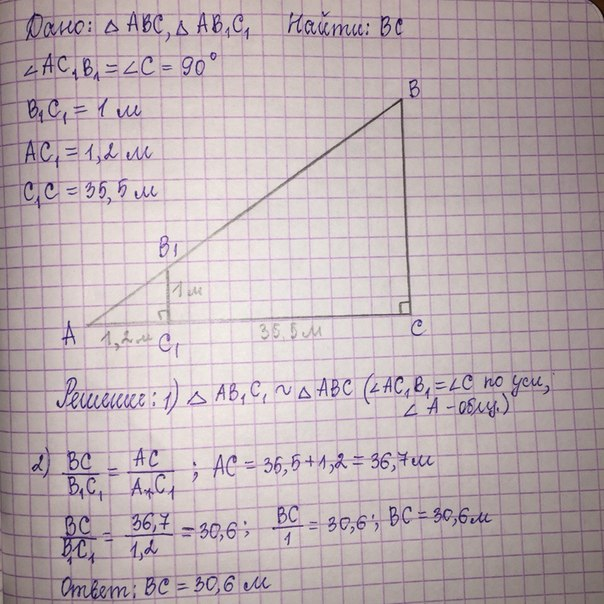 Дано: △ ABC, △ AB₁C₁ Найти: BC
∠AC₁B₁ = ∠C = 90°
B₁C₁ = 1 м
AC₁ = 1,2 м
C₁C = 35,5 м
B
B₁
1 м
A
1,2 м
C₁
35,5 м
C
Решение: 1) △ AB₁C₁ ~ △ ABC (∠AC₁B₁ = ∠C по усл,
∠ A - общ.)
2) BC/B₁C₁ = AC/A₁C₁ ; AC = 35,5 + 1,2 = 36,7 м
BC/B₁C₁ = 36,7/1,2 = 30,6 ; BC/1 = 30,6 ; BC = 30,6 м
Ответ: BC = 30,6 м